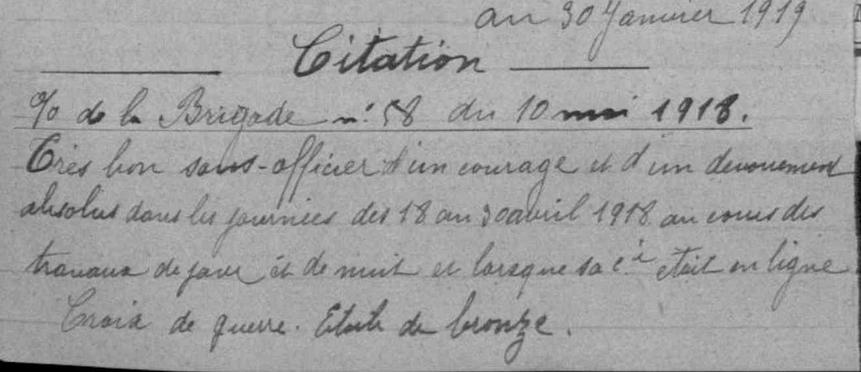 au 30 Janvier 1919
Citation
O/ de la Brigade n° 58 du 10 mai 1918.
Très bon sous-officier d'un courage et d'un devouement
absolus dans les journées des 18 au 30 avril 1918 au cours des
travaux de jour et de nuit et lorsque sa Cie était en ligne
Croix de guerre. Etoile de bronze.